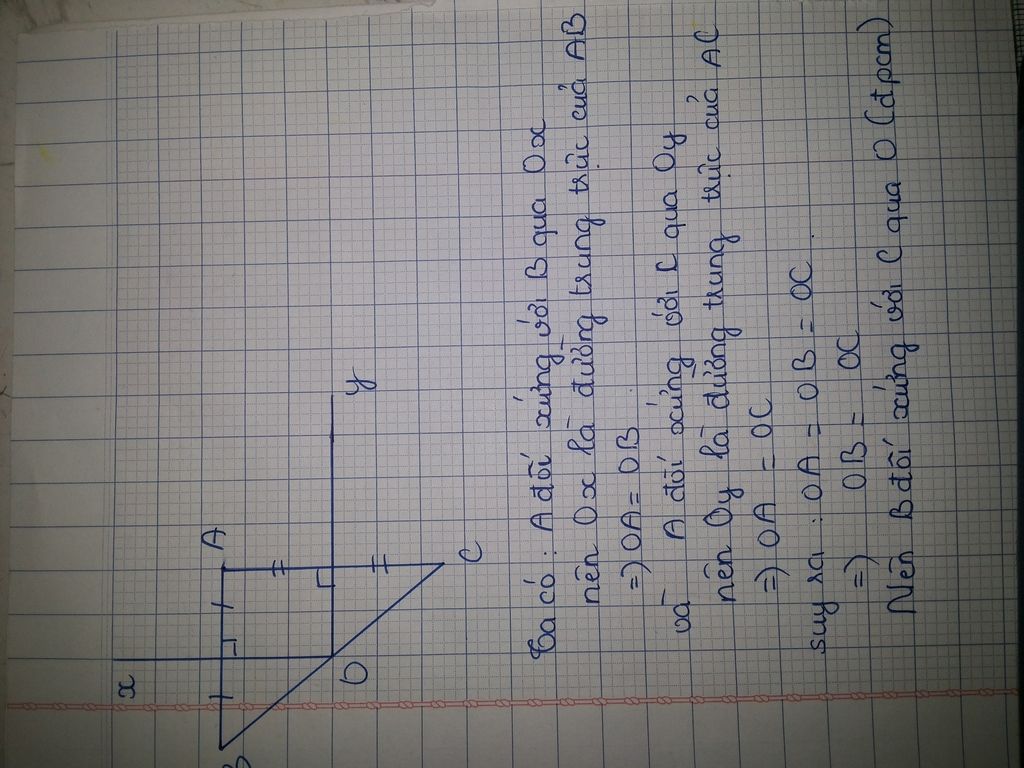 x
A
B
O
y
C
Ta có : A đối xứng với B qua Ox
nên Ox là đường trung trực của AB
=) OA = OB .
và A đối xứng với C qua Oy
nên Oy là đường trung trực của AC
=) OA = OC
suy ra : OA = OB = OC .
=) OB = OC
Nên B đối xứng với C qua O (đpcm)